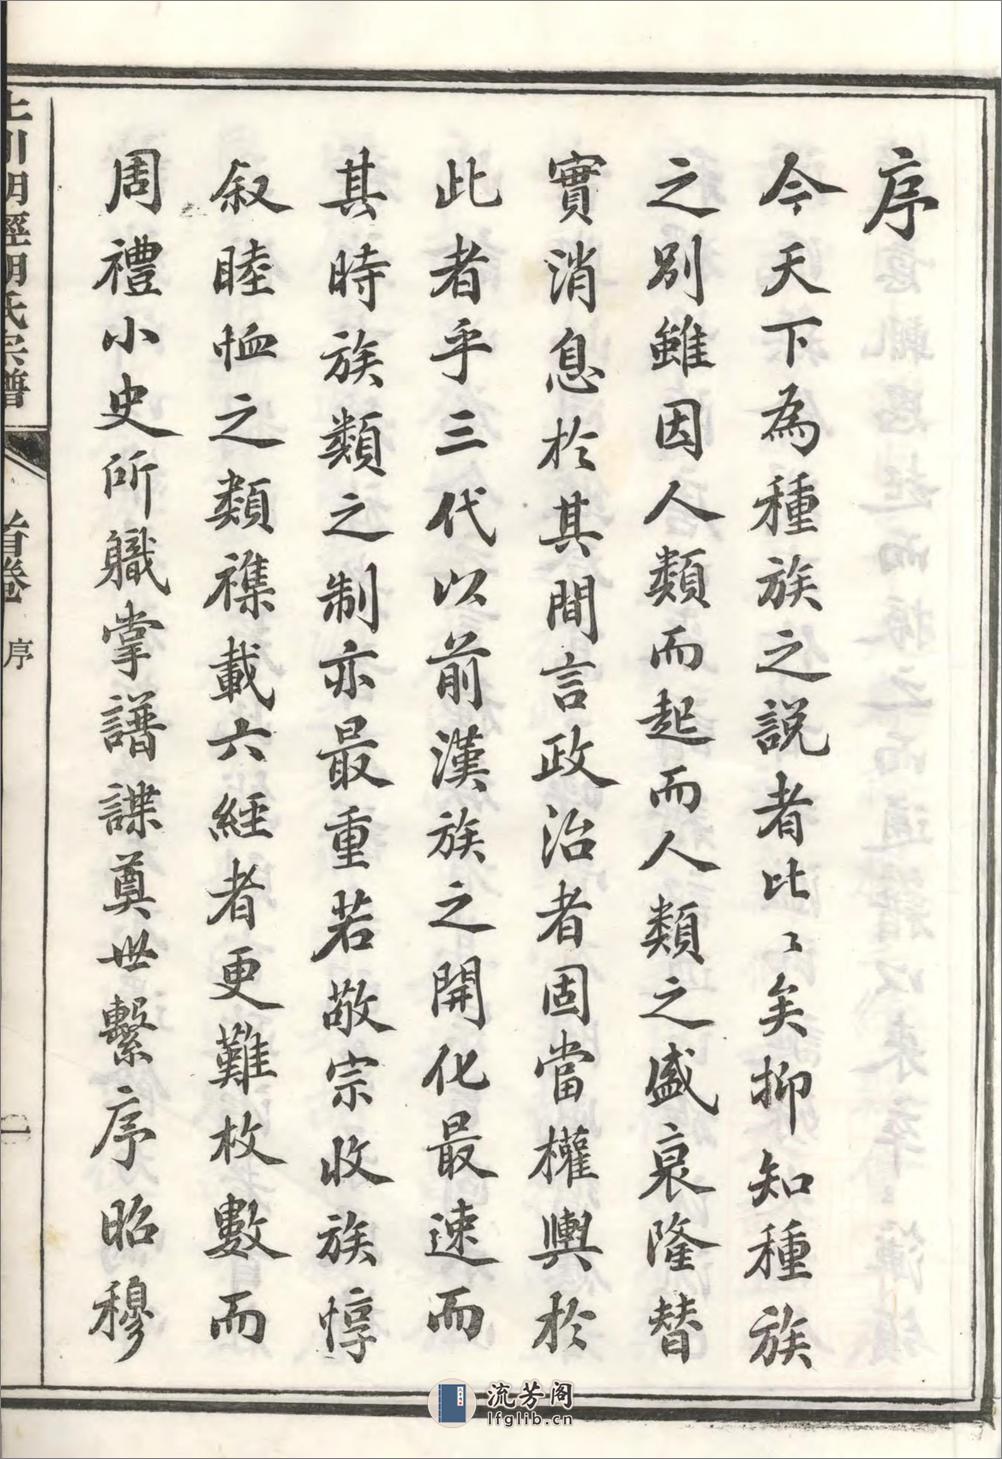 序
今天下為種族之說者比〻矣抑知種族
之別雖因人類而起而人類之盛衰隆替
實消息於其間言政治者固當權輿於
此者乎三代以前漢族之開化最速而
其時族類之制亦最重若敬宗收族惇
叙睦恤之類襍載六經者更難枚數而
周禮小史所職掌譜諜奠世繫序昭穆
上川明經胡氏宗譜
首卷
序
一
流芳阁
lfglib.cn